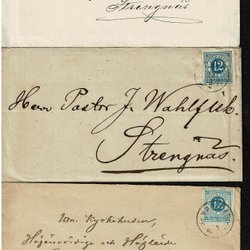 Strengnäs
12
Herr Pastor J. Wahlfisk.
Strengnäs.
12
Kyrkoherden,
Högärevördige och Höglärde